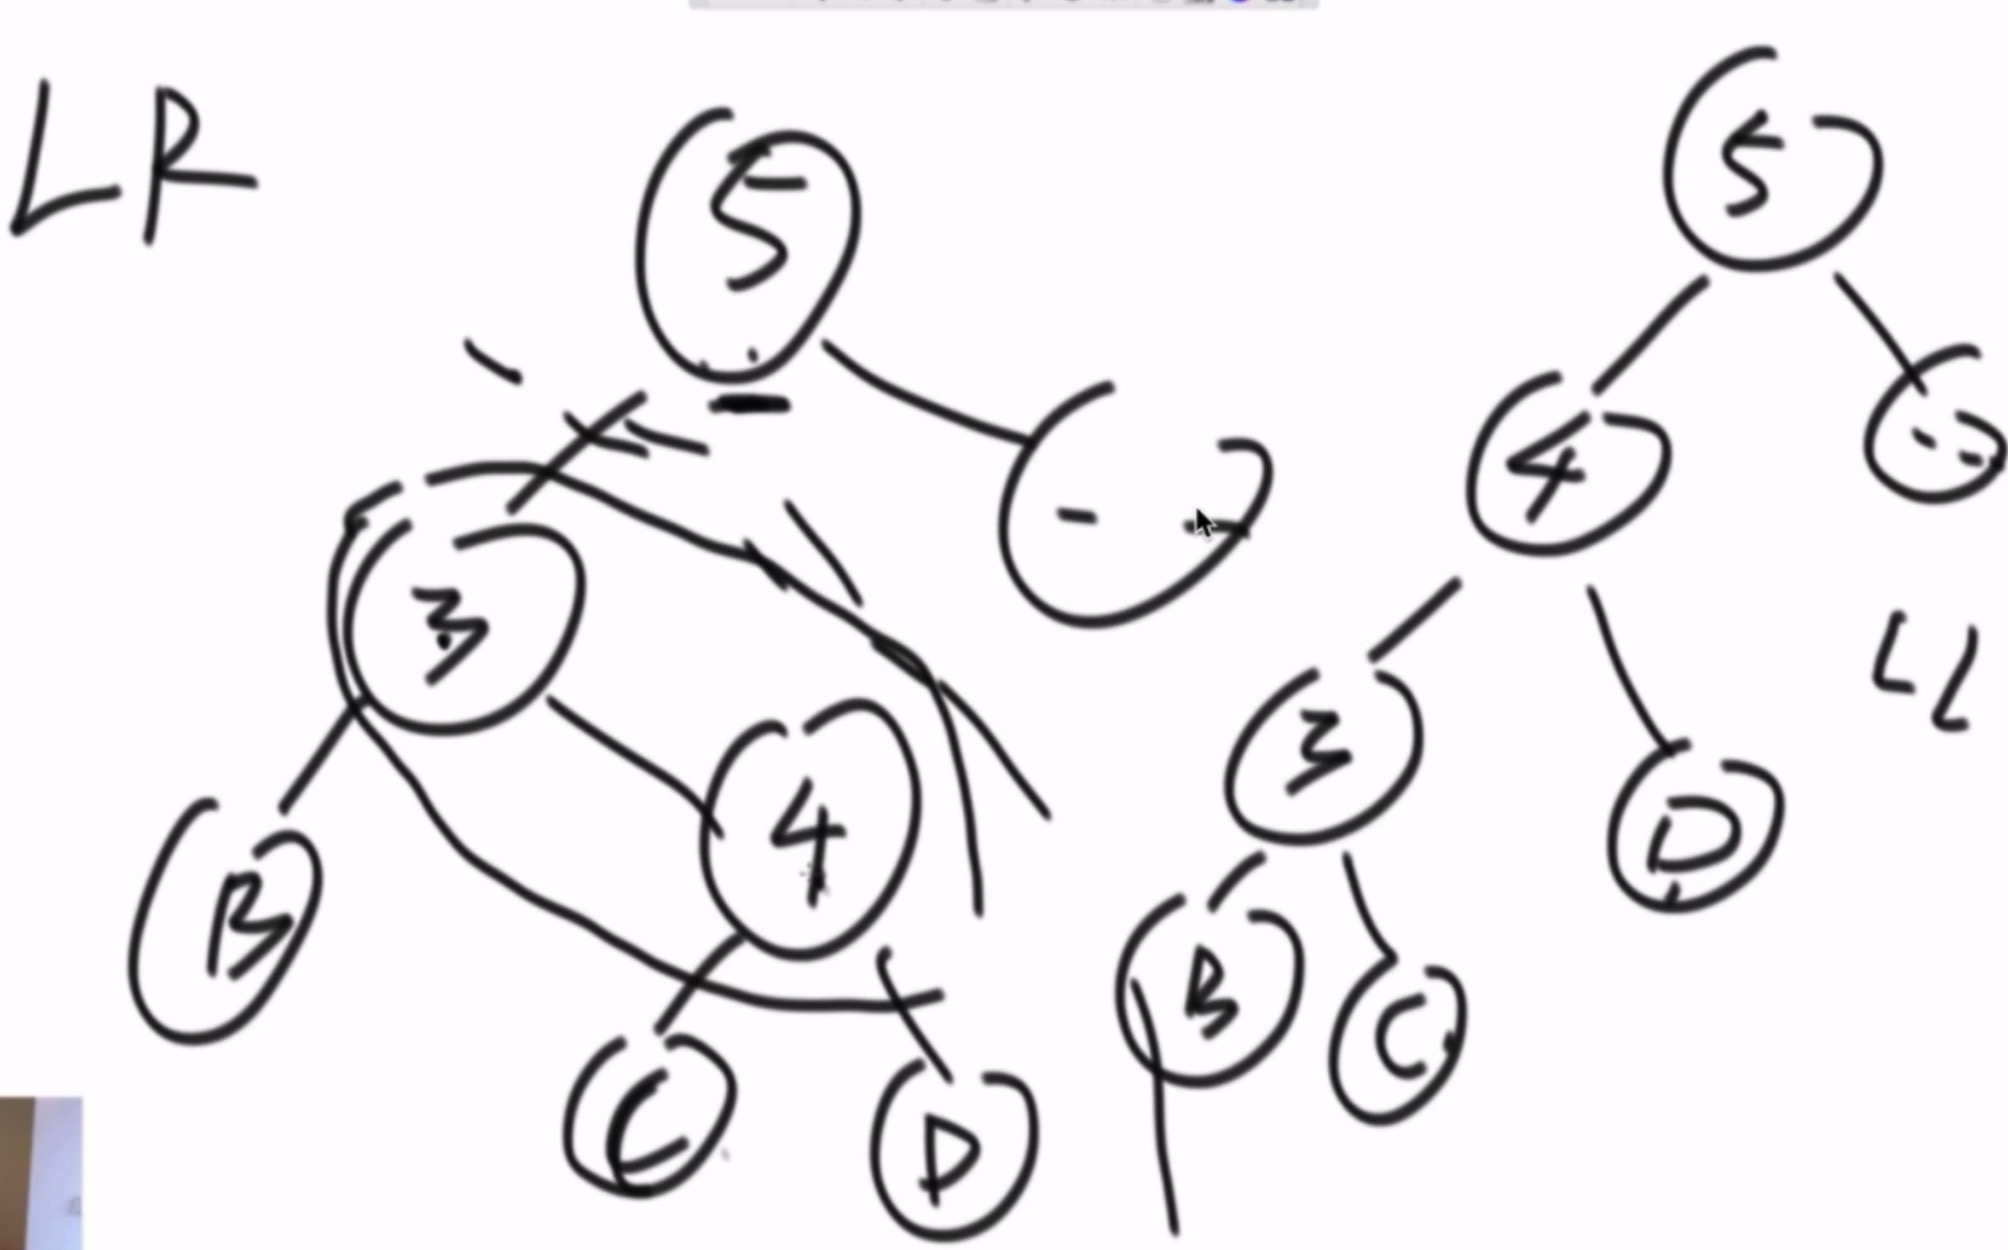 LR
5
3
B
4
C
D
5
4
3
D
B
C
LL